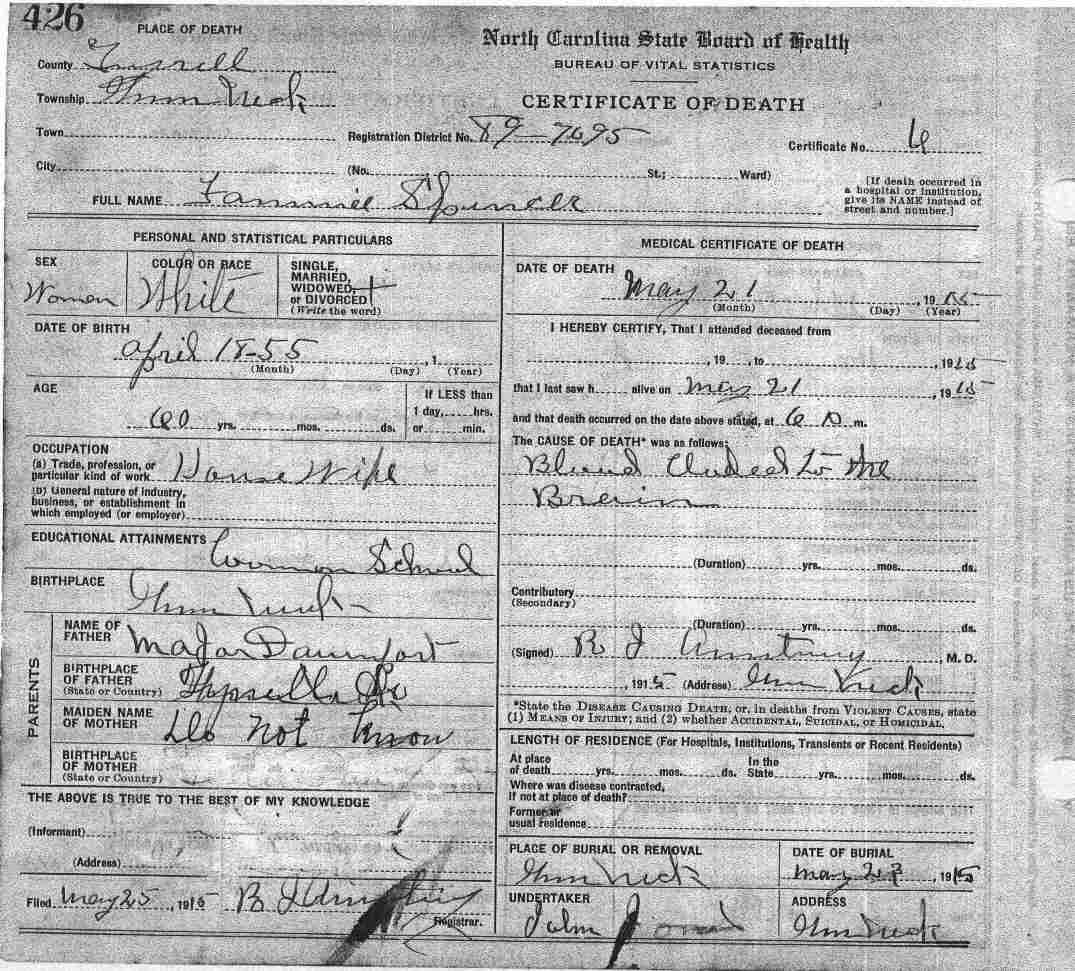 426
PLACE OF DEATH
North Carolina State Board of Health
BUREAU OF VITAL STATISTICS
CERTIFICATE OF DEATH
County
Township Gum Neck
Town
Registration District No. 89-7695
Certificate No. 6
City
(No. St.; Ward)
[If death occurred in a hospital or institution, give its NAME instead of street and number.]
FULL NAME Fannie
PERSONAL AND STATISTICAL PARTICULARS
SEX
Woman
COLOR OR RACE
White
SINGLE, MARRIED, WIDOWED, or DIVORCED
(Write the word)
DATE OF BIRTH
April 18-55
(Month) (Day) , 1 (Year)
AGE
60 yrs. mos. ds.
If LESS than
1 day, hrs.
or min.
OCCUPATION
(a) Trade, profession, or particular kind of work House Wife
(b) General nature of industry, business, or establishment in which employed (or employer)
EDUCATIONAL ATTAINMENTS
Common School
BIRTHPLACE
Gum Neck
PARENTS
NAME OF FATHER
Major Davenport
BIRTHPLACE OF FATHER
(State or Country)
MAIDEN NAME OF MOTHER
Do Not Know
BIRTHPLACE OF MOTHER
(State or Country)
THE ABOVE IS TRUE TO THE BEST OF MY KNOWLEDGE
(Informant)
(Address)
Filed May 25, 1915
Registrar.
MEDICAL CERTIFICATE OF DEATH
DATE OF DEATH
May 21 , 1915
(Month) (Day) (Year)
I HEREBY CERTIFY, That I attended deceased from
, 19 , to 1915
that I last saw h alive on May 21 , 1915
and that death occurred on the date above stated, at 6 m.
The CAUSE OF DEATH* was as follows:
Blood to the
Brain
(Duration) yrs. mos. ds.
Contributory
(Secondary)
(Duration) yrs. mos. ds.
(Signed) R J , M. D.
, 1915 (Address) Gum Neck
*State the DISEASE CAUSING DEATH, or, in deaths from VIOLENT CAUSES, state (1) MEANS OF INJURY; and (2) whether ACCIDENTAL, SUICIDAL, OR HOMICIDAL.
LENGTH OF RESIDENCE (For Hospitals, Institutions, Transients or Recent Residents)
At place of death yrs. mos. ds. In the State yrs. mos. ds.
Where was disease contracted, If not at place of death?
Former or usual residence
PLACE OF BURIAL OR REMOVAL
Gum Neck
DATE OF BURIAL
May 23 1915
UNDERTAKER
John
ADDRESS
Gum Neck